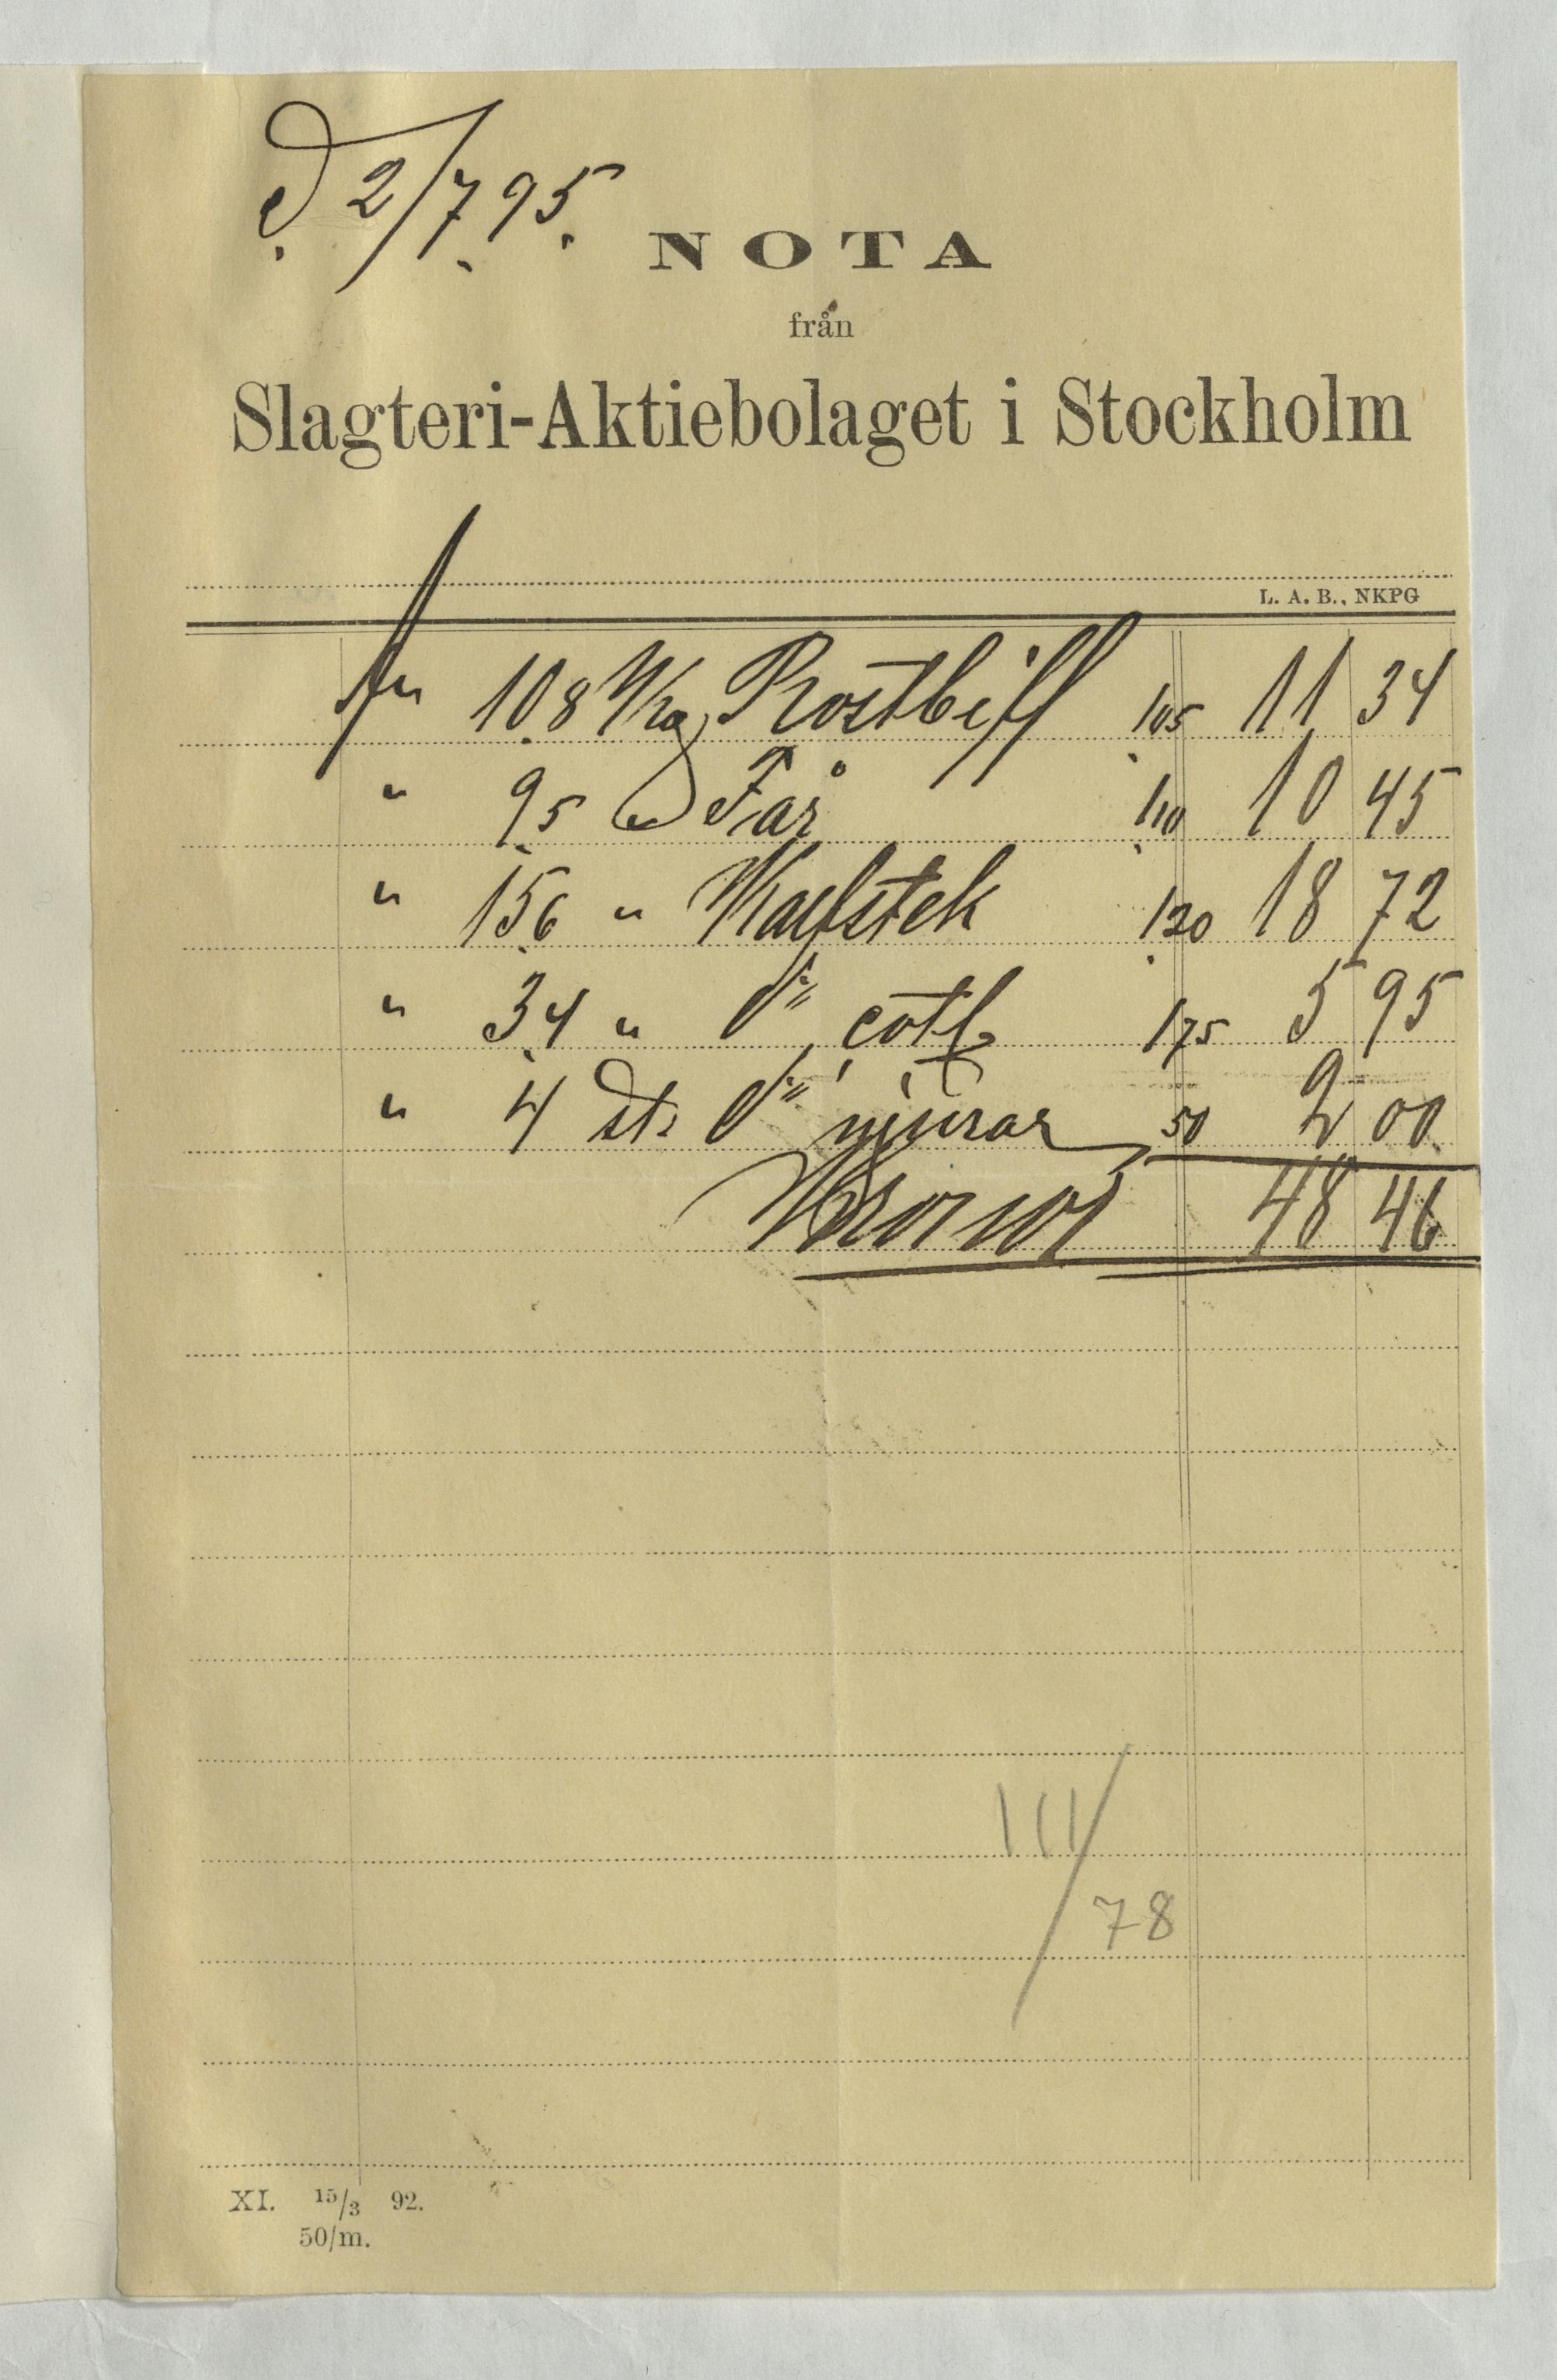 d. 2/7. 95.
NOTA
från
Slagteri-Aktiebolaget i Stockholm
L. A. B., NKPG
10.8 Kg Rostbiff 1.05 11 34
" 9.5 " Får 1.10 10 45
" 15.6 " Kalfstek 1.20 18 72
" 3.4 " d:o cotl. 1.75 5 95
" 4 st. d:o njurar 50 2 00
Kronor 48 46
111/78
XI. 15/3 92.
50/m.